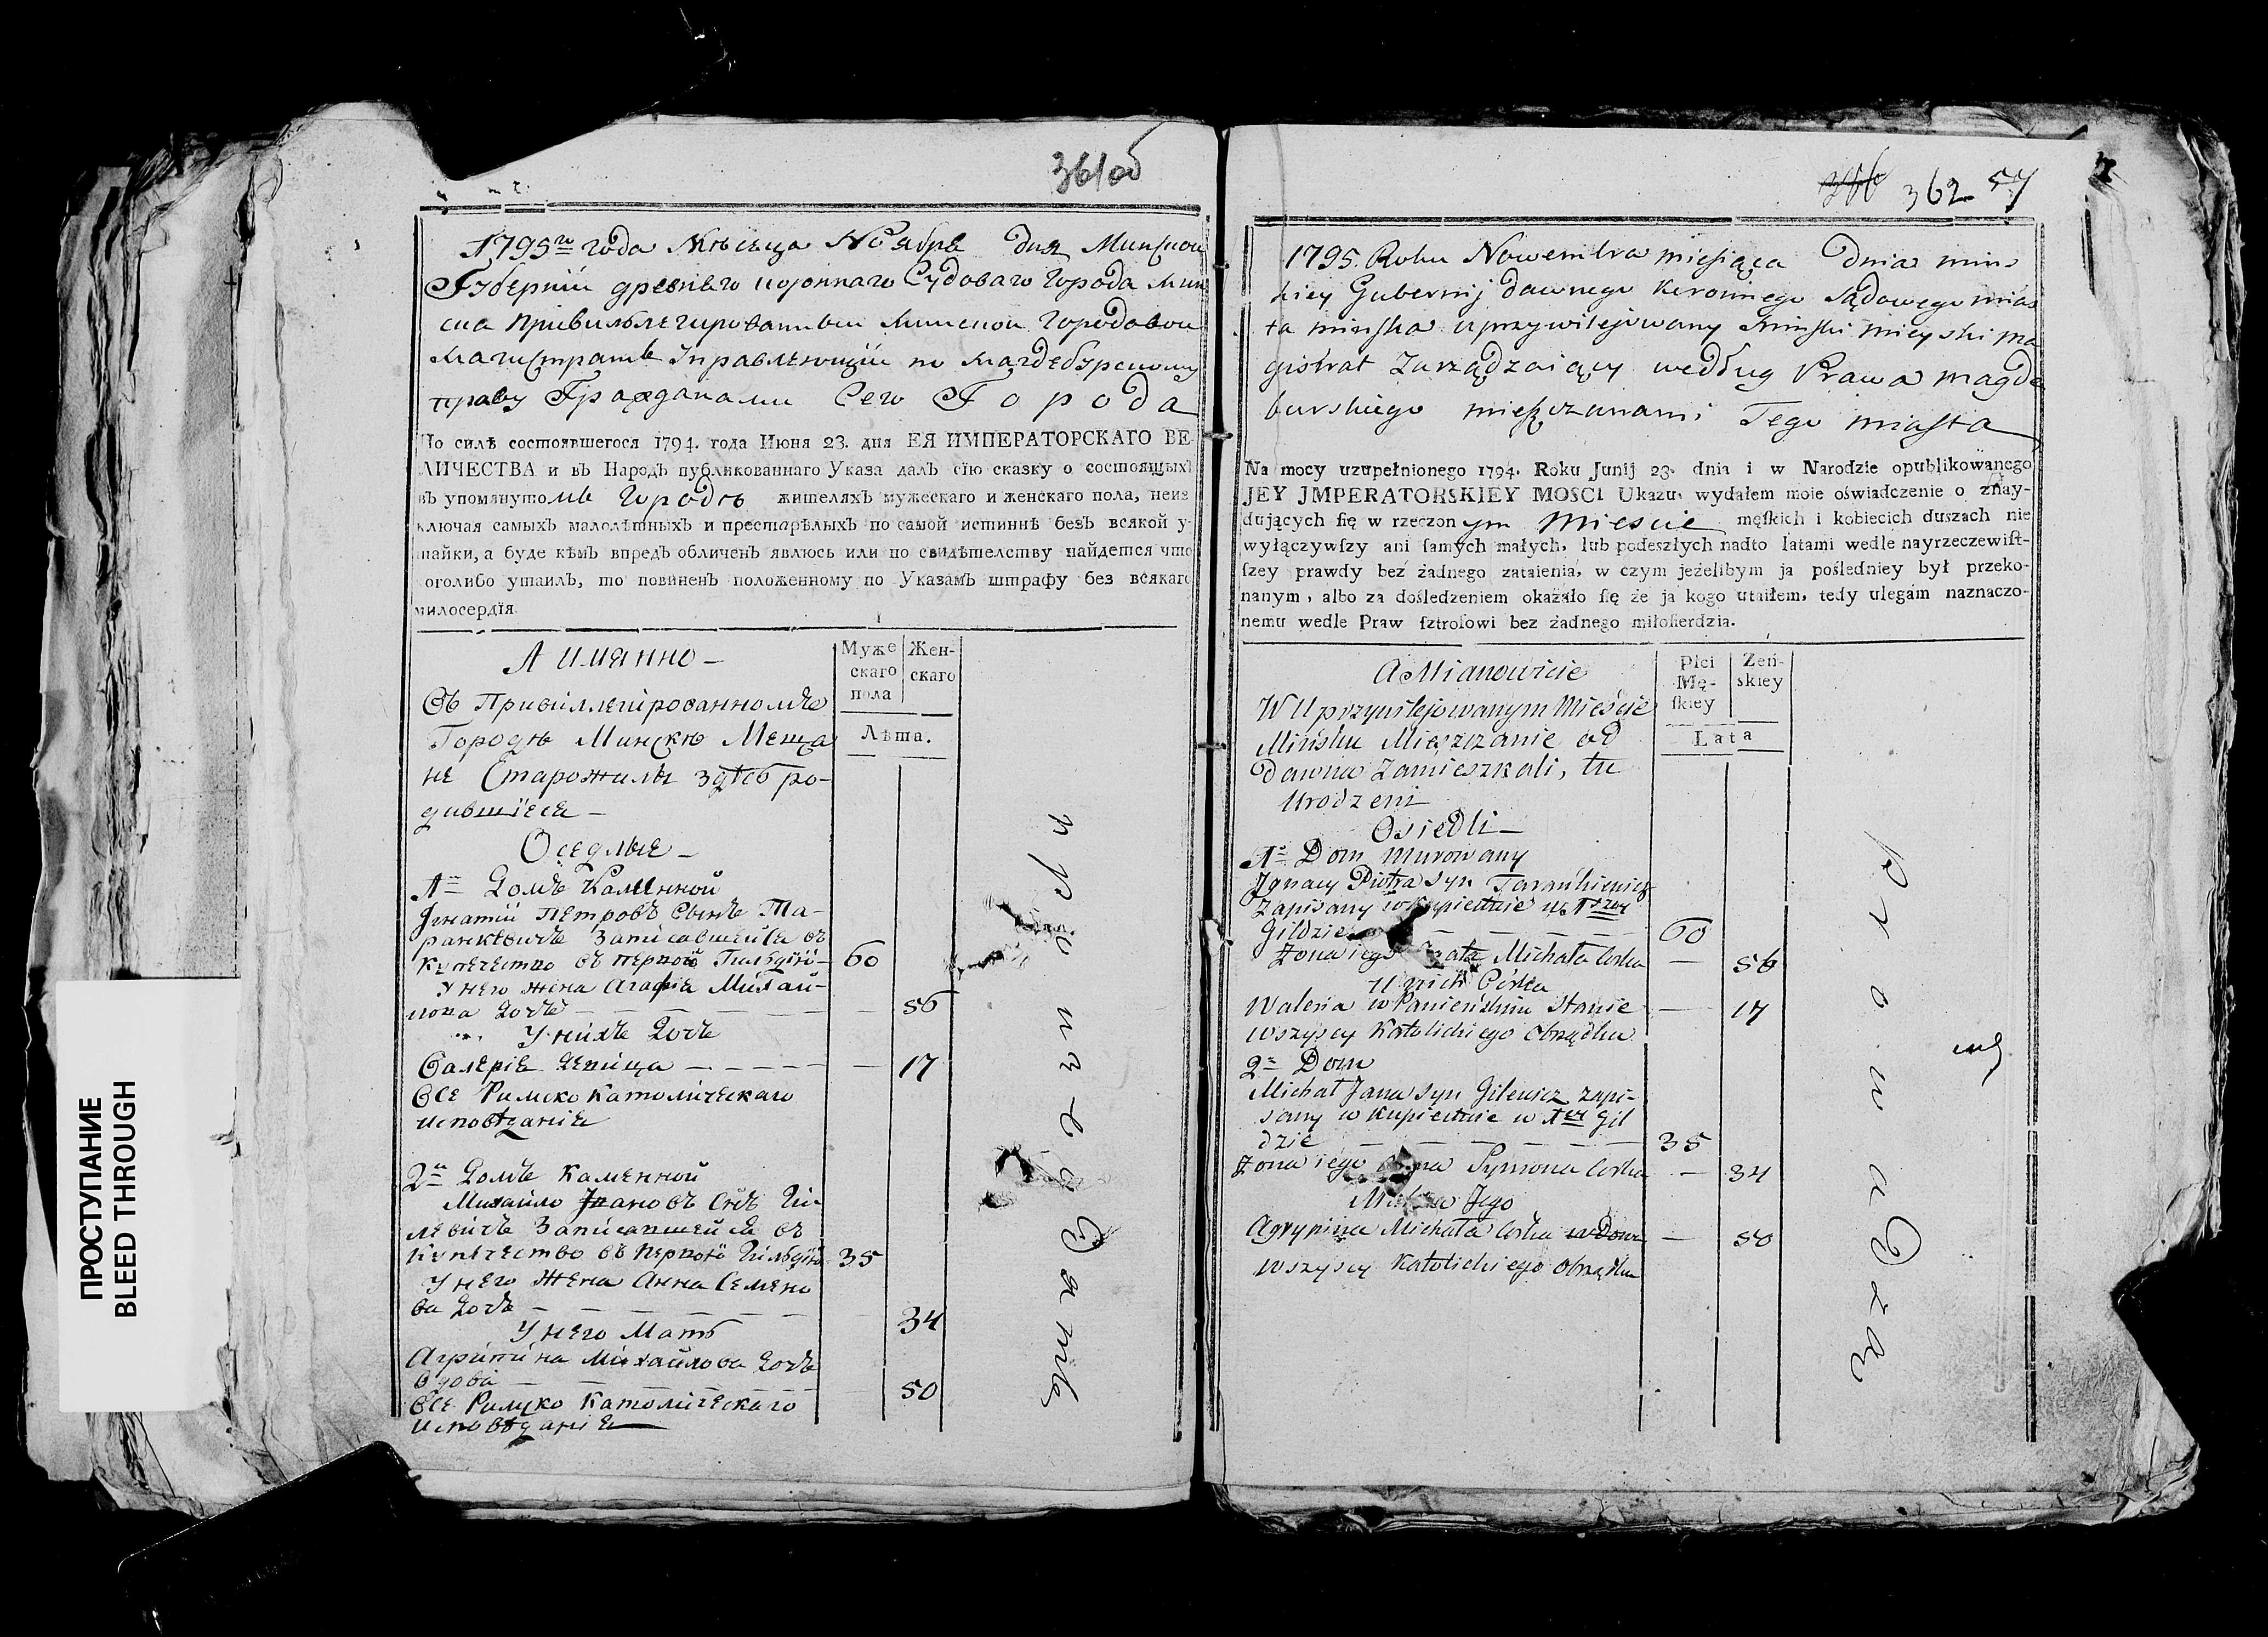 ПРОСТУПАНИЕ
BLEED THROUGH
361об
1795го года Мѣсяца Ноября дня Минской
Губерніи древняго короннаго Судоваго Города Мин
ска Привильлегированный Минской Городовой
Магистратъ Управляющій по Магдебурскому
праву Гражданами Сего Города
По силѣ состоявшегося 1794. года Июня 23. дня ЕЯ ИМПЕРАТОРСКАГО ВЕ-
ЛИЧЕСТВА и въ Народъ публикованнаго Указа далъ сію сказку о состоящыхъ
въ упомянутомъ Городѣ жителяхъ мужескаго и женскаго пола, неиз
ключая самыхъ малолѣтныхъ и престарѣлыхъ по самой истиннѣ безъ всякой у-
тайки, а буде кѣмъ впредъ обличенъ явлюсь или по свидѣтелству найдется что
оголибо утаилъ, то повиненъ положенному по Указамъ штрафу без всякаго
милосердія.
А имянно —
Муже
скаго
пола
Жен-
скаго
Лѣта.
Въ Привиллегированномъ
Городѣ Минскѣ Меща
не Старожилы здѣсь ро-
дившіеся —
Оседлые —
1й Домъ Каменной
Игнатій Петровъ Сынъ Та-
ранкѣвичъ Записавшейся въ
купечество въ первой Гильдіи — 60
У него жена Агафія Михай-
лова Дочь — 56
У нихъ Дочь
Валерія девица — 17
Все Римско Католическаго
исповѣданія
2й Домъ Каменной
Михайло Ивановъ Снъ Ги-
левичъ Записавшейся въ
Купечество въ первой Гильдіи 35
У него Жена Анна Семено
ва Дочь — 34
У него Мать
Агрипина Михайлова Дочь
Вдова — 50
Все Римско Католическаго
исповѣданія
произведать
356 362 57
1795. Roku Nowembra miesiąca Dnia mins
kiey Gubernij dawnego koronnego sądowego mias
ta minska uprzywilejowany minski mieyski ma
gistrat Zarządzaiący według Prawa magde
burskiego mieszczanami Tego miasta
Na mocy uzupełnionego 1794. Roku Junij 23. dnia i w Narodzie opublikowanego
JEY JMPERATORSKIEY MOSCI Ukazu, wydałem moie oświadczenie o znay-
dujących ſię w rzeczonym Mieście męſkich i kobiecich duszach nie
wyłączywſzy ani ſamych małych, lub podeszłych nadto latami wedle nayrzeczewiſt-
ſzey prawdy bez żadnego zataienia, w czym jeżelibym ja poſledniey był przeko-
nanym, albo za dośledzeniem okazało ſię że ja kogo utaiłem, tedy ulegam naznaczo-
nemu wedle Praw ſztrofowi bez żadnego miłoſierdzia.
A Mianowicie
Płci
Mę-
ſkiey
Żeń-
skiey
Lata
W Uprzywilejowanym Mieście
Mińsku Mieszczanie od
Dawna Zamieszkali, tu
Urodzeni
Osiedli —
1o Dom murowany
Jgnacy Piotra syn Tarankiewicz
Zapisany w kupiectwie w 1szey
Gildzie — 60
Żona iego Michała Corka — 56
U nich Córka
Waleria w Panieńskim Stanie — 17
Wszyscy Katolickiego Obrządku
2o Dom
Michał Jana syn Gilewicz zapi-
sany w Kupiectwie w 1ey Gil
dzie — 35
Żona iego Symona Corka — 34
Jego
Agrypina Michała Corka — 50
Wszyscy Katolickiego Obrządku